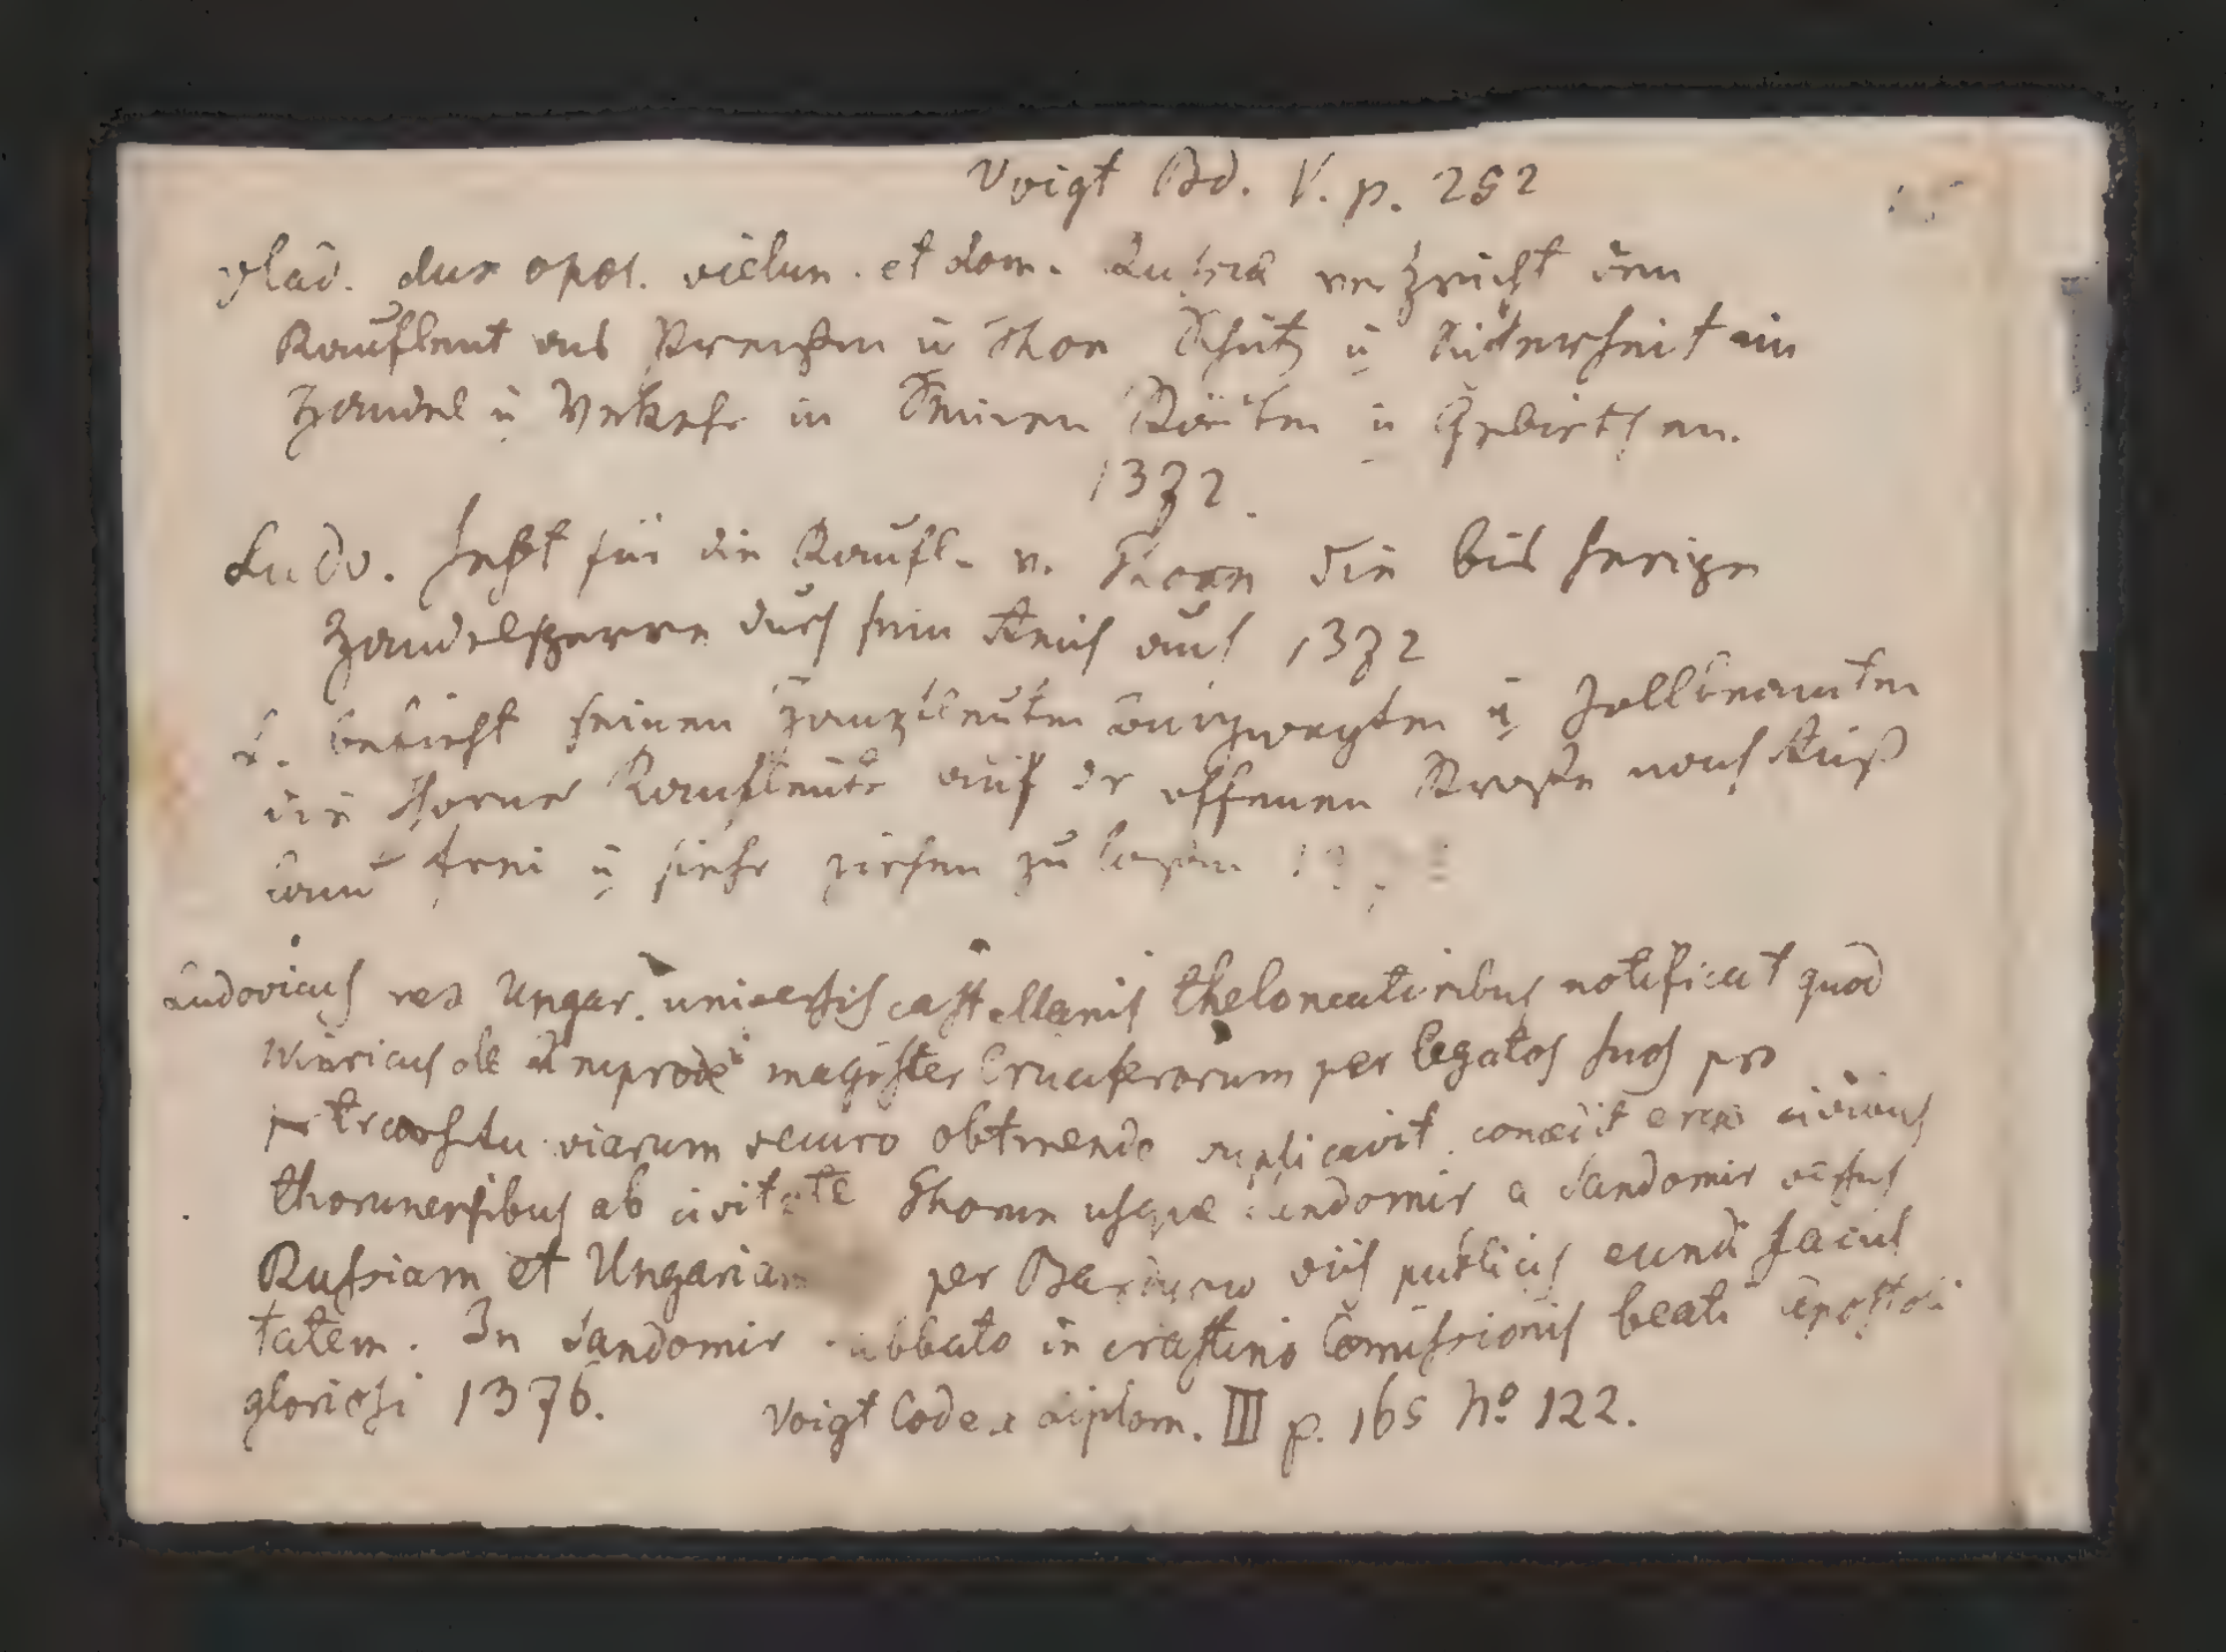 Voigt Bd. V. p. 252
Vlad. dux opol. vielun. et dom. Russiä verspricht den
Kaufleut aus Preußen u Thor Schutz u Sicherheit im
Handel u Verkehr in seinen Städten u Gebieten.
1372.
Ludv. hebt für die Kaufl. v. Thorn die bisherige
Handelsperre durch sein Reich auf 1372
L. befiehlt seinen Hauptleuten Burgvogten u Zollbeamten
die Thorner Kaufleute auf der offenen Straße nach Ruß
land frei u sicher ziehen zu lassen
Ludovicus rex Ungar. universis castellanis theloneatoribus notificat quod
Winricus de Knyprode magister Cruciferorum per legatos suos pro
per transitu viarum securo obtinendo suplicavit concedit ergo civibus
thorunensibus ab civitate Thorun usque Sandomir a Sandomir versus
Russiam et Ungariam per viis publicis eundi facul
tatem. In Sandomir sabbato in crastino beati apostoli
gloriosi 1376. Voigt Codex diplom. III p. 165 No 122.